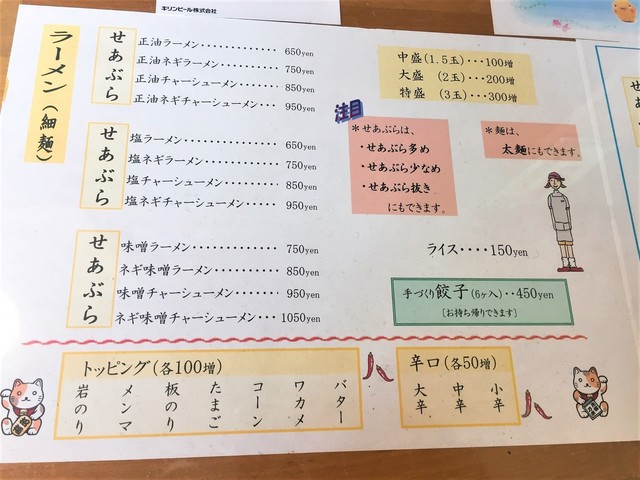 キリンビール株式会社
ラーメン（細麺）
せあぶら
正油ラーメン・・・・・・・・・・・・650yen
正油ネギラーメン・・・・・・・・750yen
正油チャーシューメン・・・・・850yen
正油ネギチャーシューメン・・・950yen
せあぶら
塩ラーメン・・・・・・・・・・・・・650yen
塩ネギラーメン・・・・・・・・・・750yen
塩チャーシューメン・・・・・・・850yen
塩ネギチャーシューメン・・・・950yen
せあぶら
味噌ラーメン・・・・・・・・・・・・750yen
ネギ味噌ラーメン・・・・・・・・850yen
味噌チャーシューメン・・・・・・950yen
ネギ味噌チャーシューメン・・・1050yen
中盛（1.5玉）・・・100増
大盛　（2玉）・・・200増
特盛　（3玉）・・・300増
注目
＊せあぶらは、
・せあぶら多め
・せあぶら少なめ
・せあぶら抜き
にもできます。
＊麺は、
太麺にもできます。
ライス・・・・150yen
手づくり餃子（6ヶ入）・・450yen
［お持ち帰りできます］
トッピング（各100増）
バター
ワカメ
コーン
たまご
板のり
メンマ
岩のり
辛口（各50増）
小辛
中辛
大辛